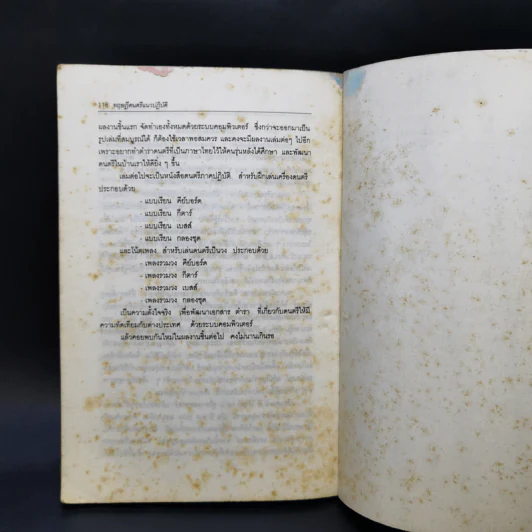 116 ทฤษฎีดนตรีแนวปฏิบัติ
ผลงานชิ้นแรก จัดทำเองทั้งหมดด้วยระบบคอมพิวเตอร์ ซึ่งกว่าจะออกมาเป็น
รูปเล่มที่สมบูรณ์ได้ ก็ต้องใช้เวลาพอสมควร และคงจะมีผลงานเล่มต่อๆ ไปอีก
เพราะอยากทำตำราดนตรีที่เป็นภาษาไทยไว้ให้คนรุ่นหลังได้ศึกษา และพัฒนา
ดนตรีในบ้านเราให้ดียิ่ง ๆ ขึ้น
เล่มต่อไปจะเป็นหนังสือดนตรีภาคปฏิบัติ สำหรับฝึกเล่นเครื่องดนตรี
ประกอบด้วย
- แบบเรียน คีย์บอร์ด
- แบบเรียน กีตาร์
- แบบเรียน เบสส์
- แบบเรียน กลองชุด
และโน้ตเพลง สำหรับเล่นดนตรีเป็นวง ประกอบด้วย
- เพลงรวมวง คีย์บอร์ด
- เพลงรวมวง กีตาร์
- เพลงรวมวง เบสส์
- เพลงรวมวง กลองชุด
เป็นความตั้งใจจริง เพื่อพัฒนาเอกสาร ตำรา ที่เกี่ยวกับดนตรีให้มี
ความทัดเทียมกับต่างประเทศ ด้วยระบบคอมพิวเตอร์
แล้วคอยพบกันใหม่ในผลงานชิ้นต่อไป คงไม่นานเกินรอ